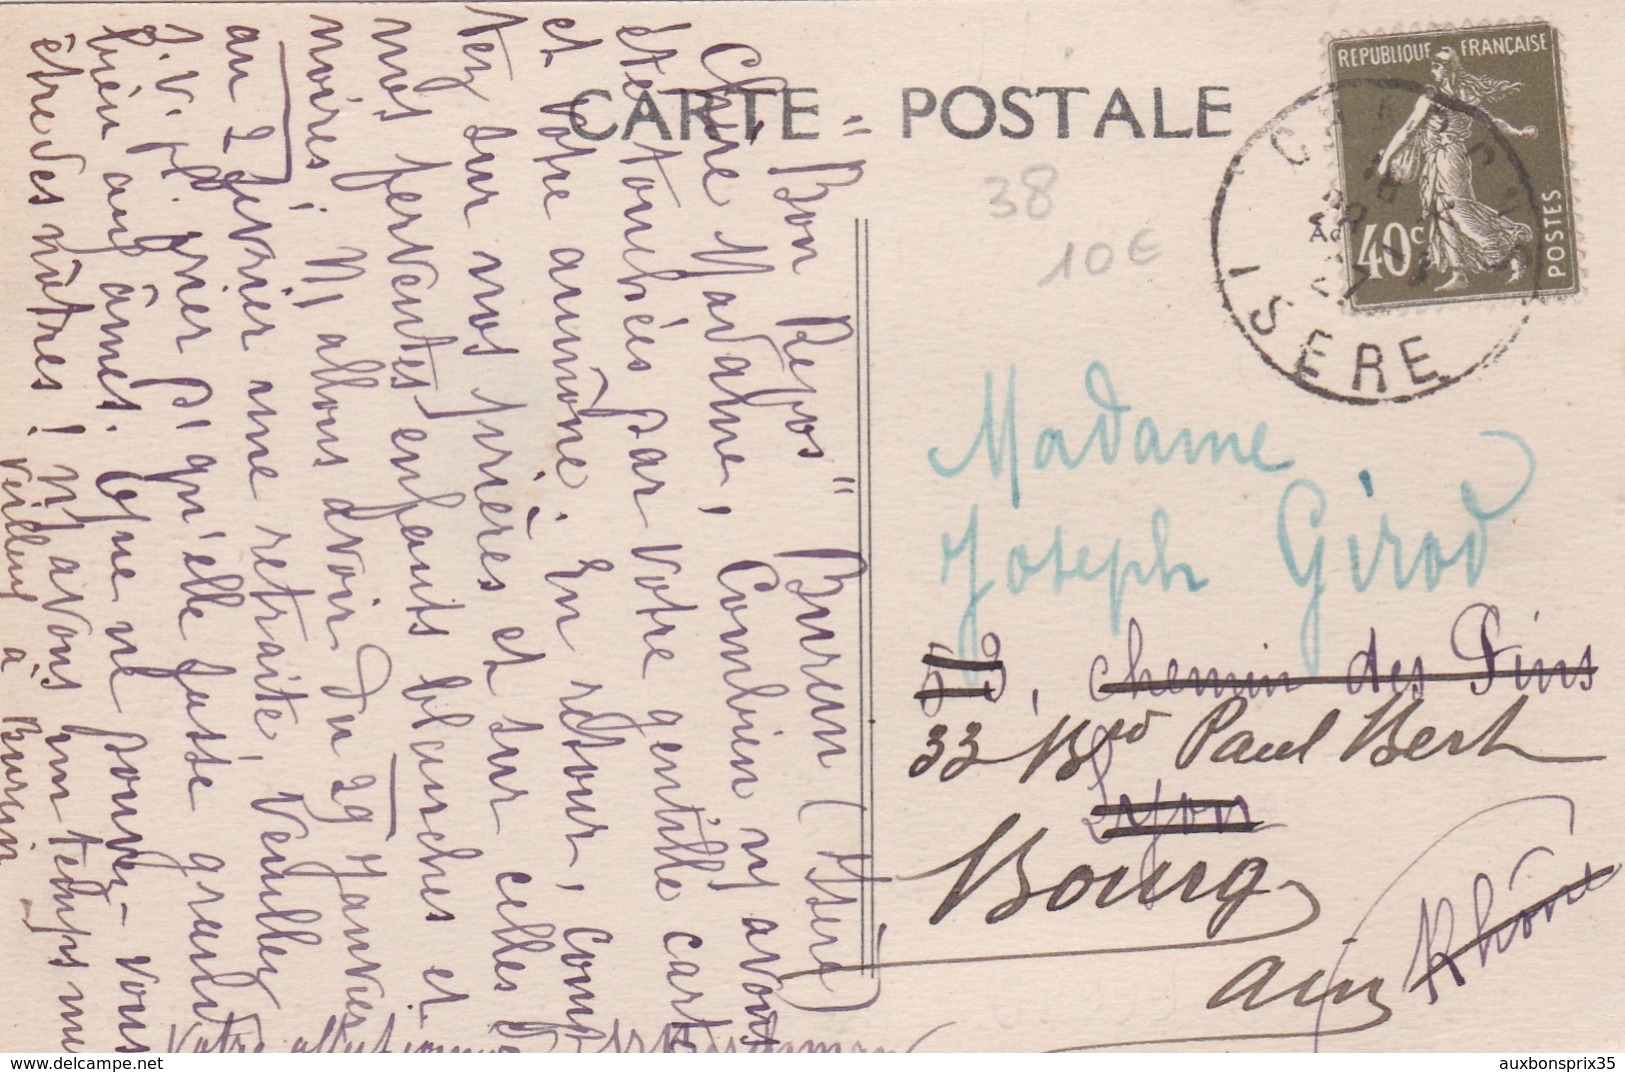 CARTE POSTALE
REPUBLIQUE FRANÇAISE
40c
POSTES
ISERE
38
10€
"Bon Repos" Burcin (Isère)
Chère Madame, Combien ns avons
été touchées par votre gentille carte
et votre aumône. En retour, comp
tez sur nos prières et sur celles de
nos ferventes enfants blanches et
noires! Ns allons avoir du 29 Janvier
au 2 février une retraite, Veuillez
prier pr qu'elle fasse grand
bien aux âmes. Que ne pouvez-vous
être des nôtres! Ns avons bon temps
veilleux à Burcin
Votre
Madame
Joseph Girod
53, chemin des Pins
33 Bred Paul Bert
Lyon
Bourg
Ain
Rhône
auxbonsprix35